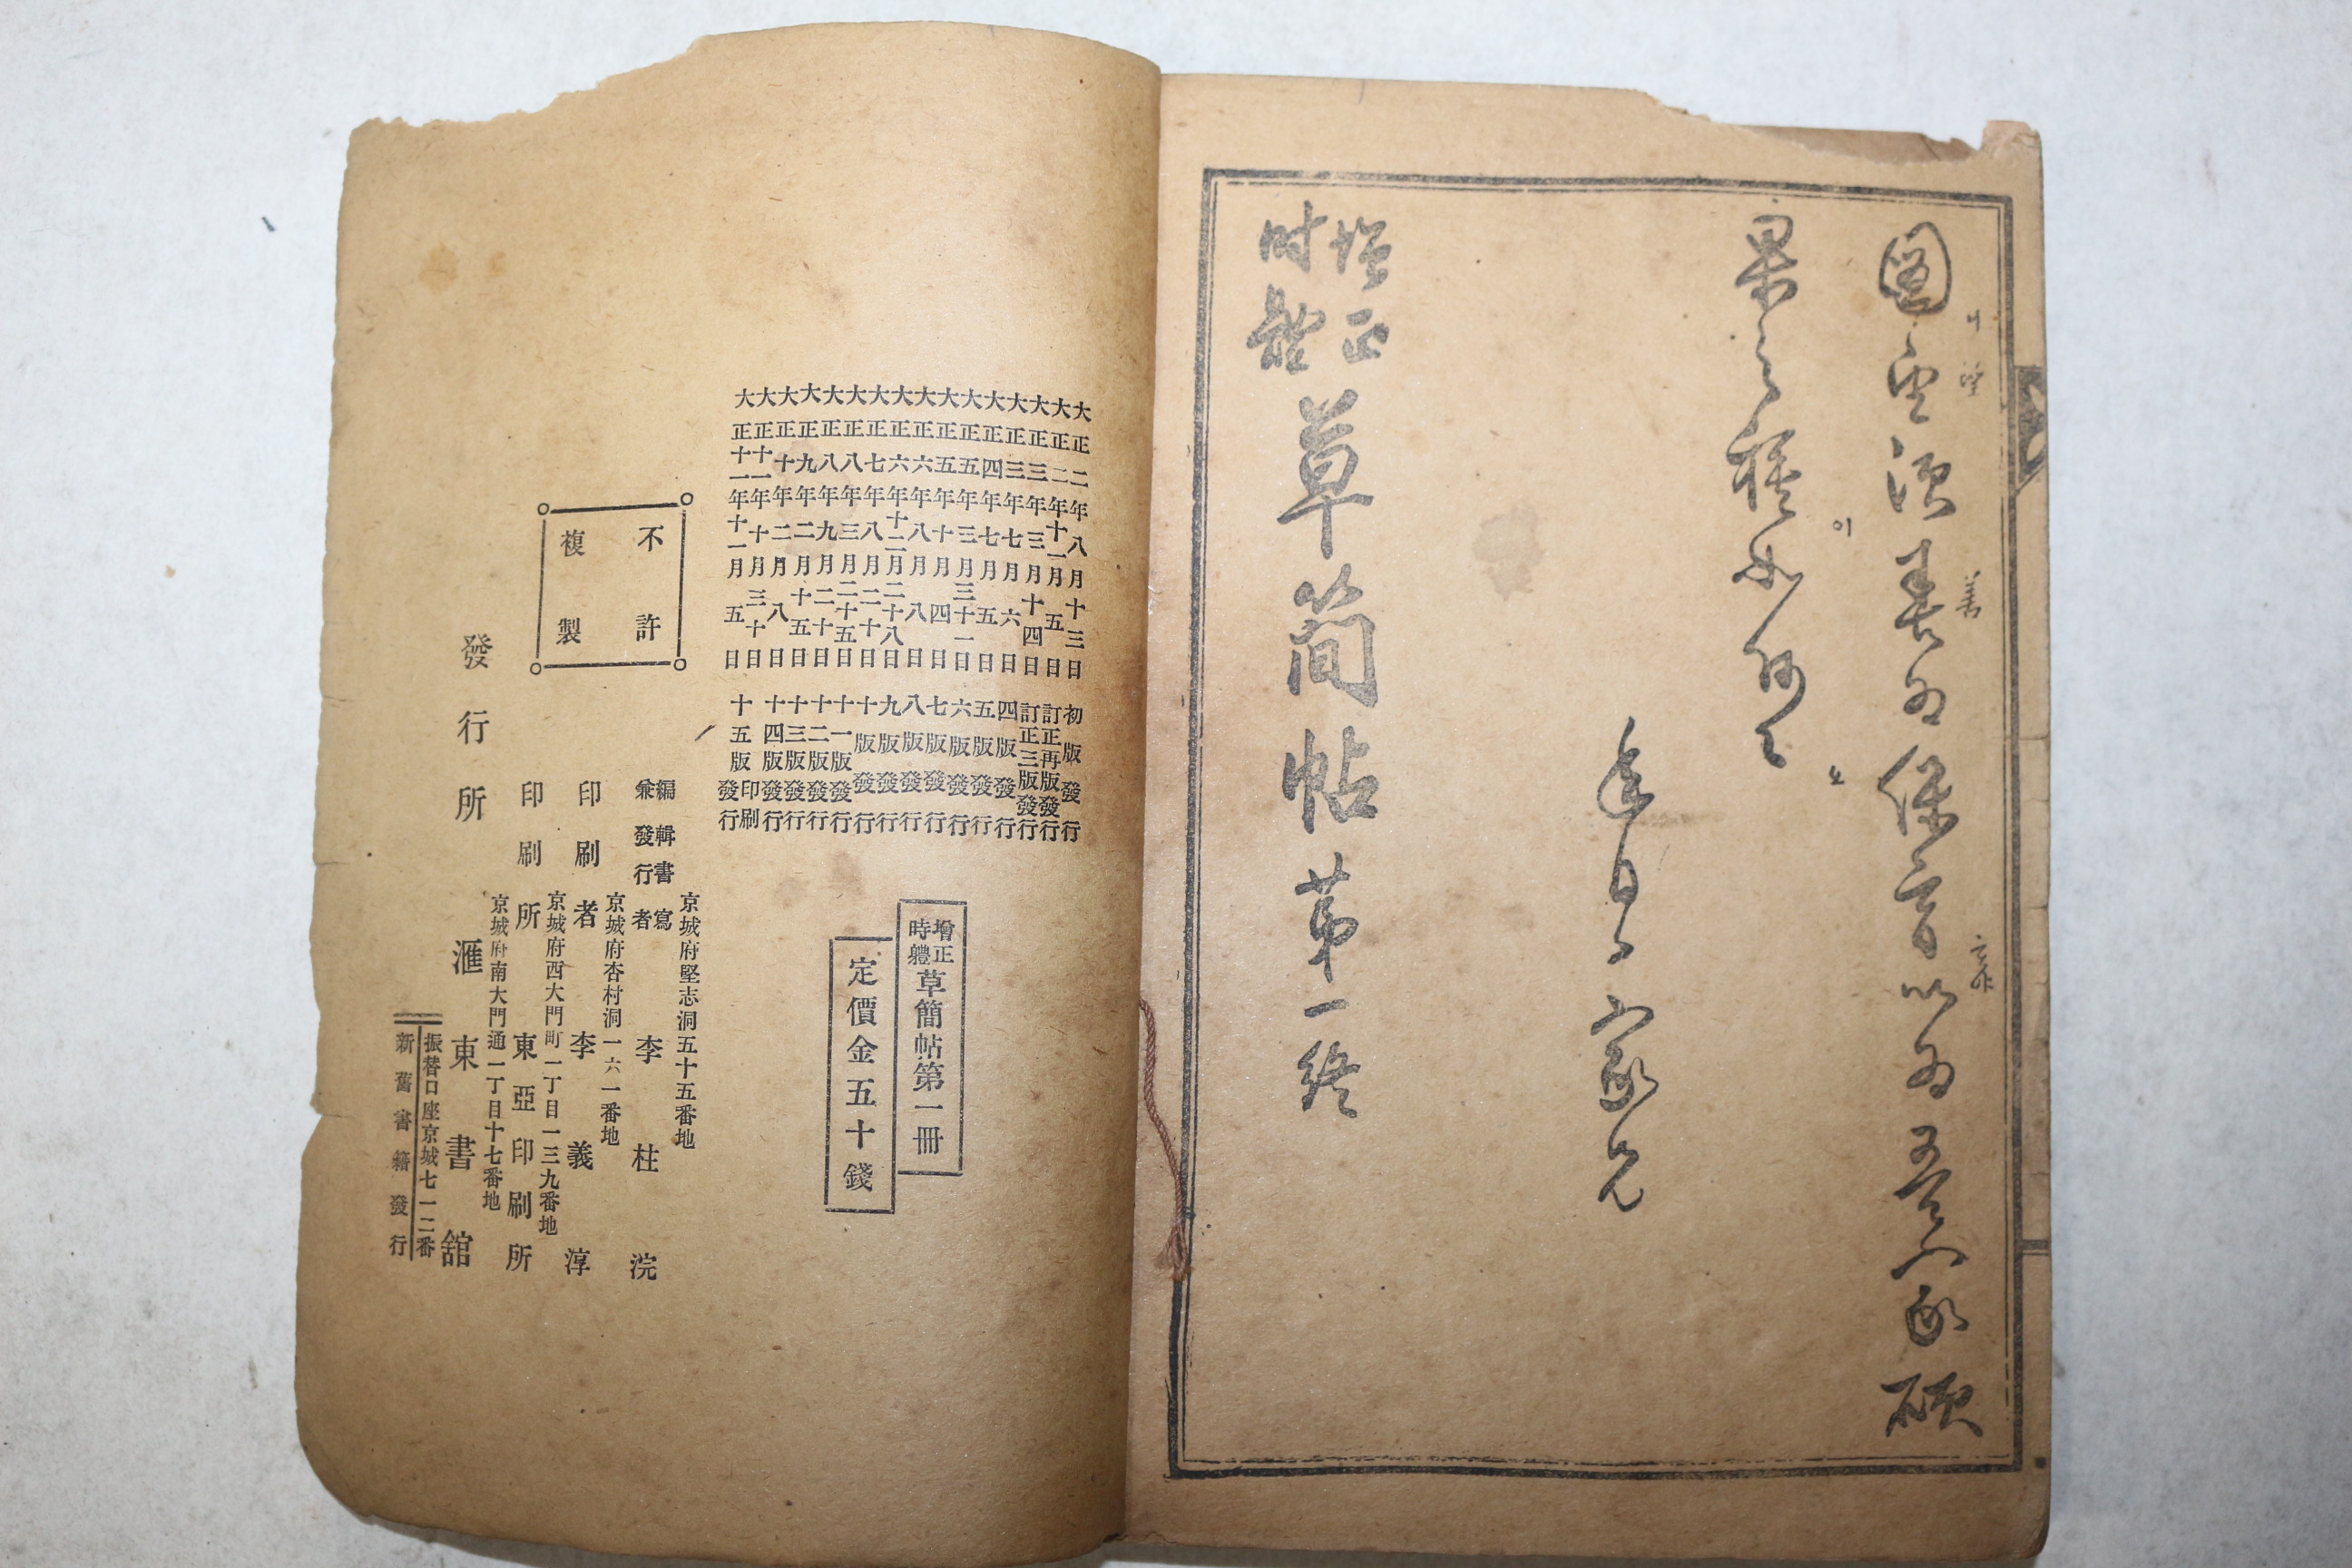 望須善爲保育以爲吾家碩
니
望
善
果之種如何〃
이
오
年月日 家兄
增正
時體
草簡帖第一終
大正二年八月十三日 初版發行
大正二年十一月五日 訂正再版發行
大正三年三月十四日 訂正三版發行
大正三年七月六日 四版發行
大正四年七月五日 五版發行
大正五年三月三十一日 六版發行
大正五年十月四日 七版發行
大正六年八月八日 八版發行
大正六年十二月二十八日 九版發行
大正七年八月二十日 十版發行
大正八年三月二十五日 十一版發行
大正八年九月二十日 十二版發行
大正九年二月十五日 十三版發行
大正十年二月八日 十四版發行
大正十一年十月三十日 印刷
大正十一年十一月五日 十五版 發行
增正
時軆
草簡帖第一冊
定價金五十錢
不許
複製
京城府堅志洞五十五番地
編輯書寫
兼發行者 李柱浣
京城府杏村洞一六一番地
印刷者 李義淳
京城府西大門町一丁目一三九番地
印刷所 東亞印刷所
京城府南大門通一丁目十七番地
發行所 滙東書舘
振替口座京城七一二番
新舊書籍發行